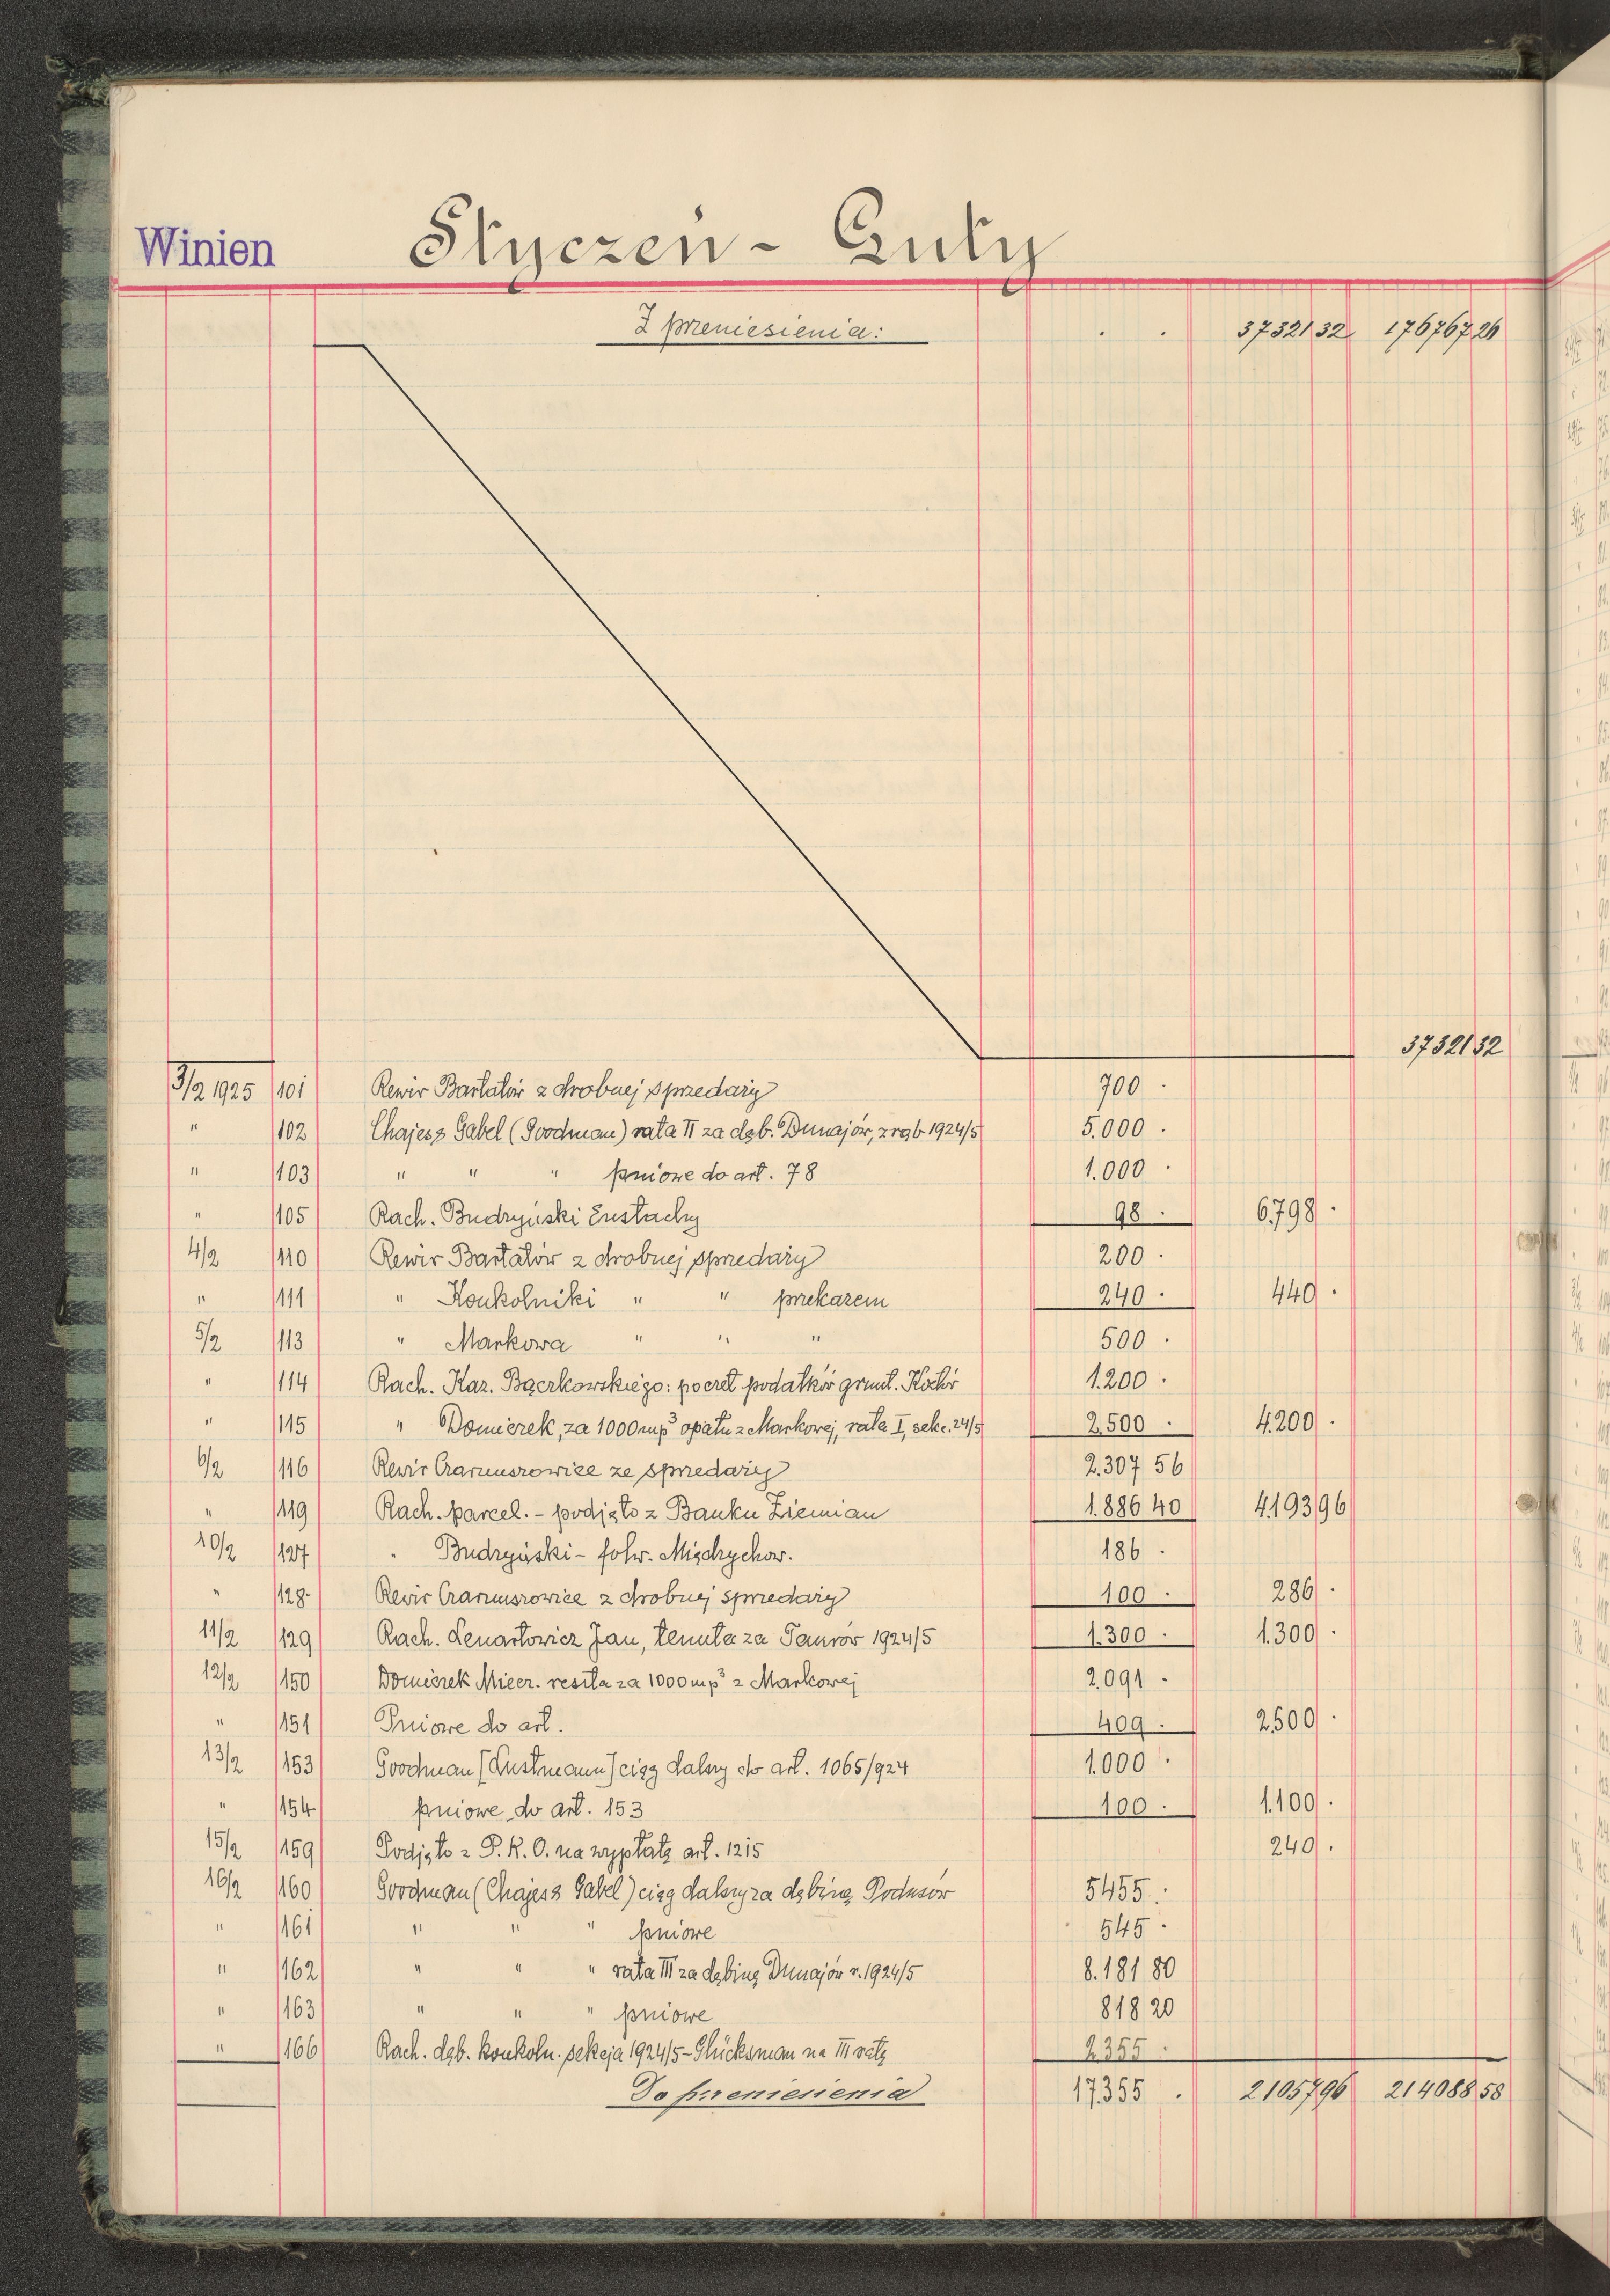 Winien Styczeń - Luty
Z przeniesienia: . . 37321 32 176767 26
37321 32
3/2 1925 101 Rewir Bartatów z drobnej sprzedaży 700 .
" 102 Chajes & Gabel (Goodman) rata II za dąb. Dunajów, zrąb 1924/5 5.000 .
" 103 " " " pniowe do art. 78 1.000 .
" 105 Rach. Budryński Eustachy 98 . 6.798 .
4/2 110 Rewir Bartatów z drobnej sprzedaży 200 .
" 111 " Konkolniki " " przekazem 240 . 440 .
5/2 113 " Markowa " " " 500 .
" 114 Rach. Kaz. Bączkowskiego: poczet podatków grunt. 1.200 .
" 115 " Domierek, za 1000 mp³ opału z Markowej, rata I, sekc. 24/5 2.500 . 4.200 .
6/2 116 Rewir ze sprzedaży 2.307 56
" 119 Rach. parcel. - podjęto z Banku Ziemian 1.886 40 4.193 96
10/2 127 " Budryński - folw. Miądrychow. 186 .
" 128 Rewir z drobnej sprzedaży 100 . 286 .
11/2 129 Rach. Lenartowicz Jan, tenuta za Taurów 1924/5 1.300 . 1.300 .
12/2 150 Domierek Miecz. reszta za 1000 mp³ z Markowej 2.091 .
" 151 Pniowe do art. 409 . 2.500 .
13/2 153 Goodman [Lustmann] ciąg dalszy do art. 1065/924 1.000 .
" 154 pniowe do art. 153 100 . 1.100 .
15/2 159 Podjęto z P. K. O. na wypłatę art. 1215 240 .
16/2 160 Goodman (Chajes & Gabel) ciąg dalszy za dębinę Podusów 5455 .
" 161 " " " pniowe 545 .
" 162 " " " rata III za dębinę Dunajów r. 1924/5 8.181 80
" 163 " " " pniowe 818 20
" 166 Rach. dąb. konkoln. sekcja 1924/5 - Glücksman na III ratę 2.355 .
Do przeniesienia 17.355 . 21057 96 214088 58